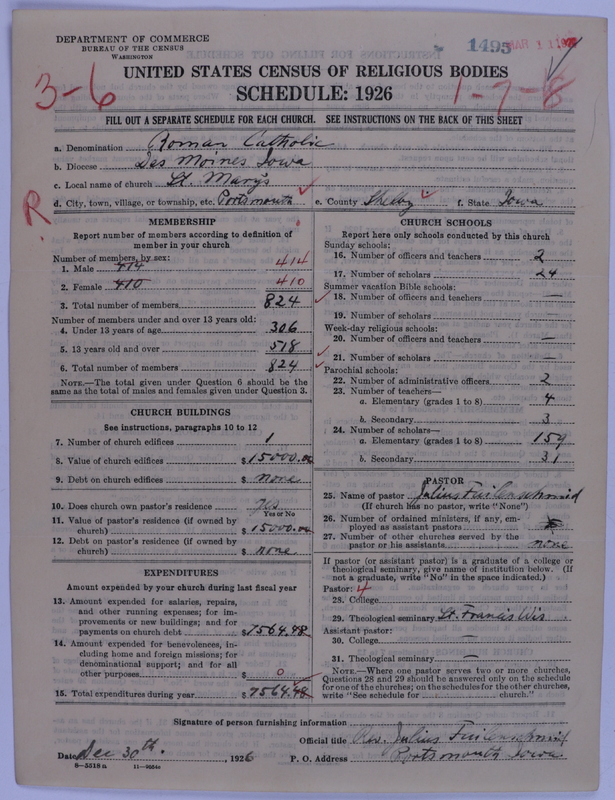 DEPARTMENT OF COMMERCE
BUREAU OF THE CENSUS
WASHINGTON
1495 MAR 11
UNITED STATES CENSUS OF RELIGIOUS BODIES
SCHEDULE: 1926
3-6
1-7-8
FILL OUT A SEPARATE SCHEDULE FOR EACH CHURCH. SEE INSTRUCTIONS ON THE BACK OF THIS SHEET
a. Denomination Roman Catholic
b. Diocese Des Moines Iowa
c. Local name of church St. Mary's
d. City, town, village, or township, etc. Portsmouth e. County Shelby f. State Iowa
R
MEMBERSHIP
Report number of members according to definition of
member in your church
Number of members, by sex:
1. Male 414 414
2. Female 410 410
3. Total number of members 824
Number of members under and over 13 years old:
4. Under 13 years of age 306
5. 13 years old and over 518
6. Total number of members 824
NOTE.—The total given under Question 6 should be the
same as the total of males and females given under Question 3.
CHURCH BUILDINGS
See instructions, paragraphs 10 to 12
7. Number of church edifices 1
8. Value of church edifices $ 15000.00
9. Debt on church edifices $ none
10. Does church own pastor's residence Yes
Yes or No
11. Value of pastor's residence (if owned by
church) $ 15000.00
12. Debt on pastor's residence (if owned by
church) $ none
EXPENDITURES
Amount expended by your church during last fiscal year
13. Amount expended for salaries, repairs,
and other running expenses; for im-
provements or new buildings; and for
payments on church debt $ 7564.48
14. Amount expended for benevolences, in-
cluding home and foreign missions; for
denominational support; and for all
other purposes $ 0
15. Total expenditures during year $ 7564.48
CHURCH SCHOOLS
Report here only schools conducted by this church
Sunday schools:
16. Number of officers and teachers 2
17. Number of scholars 24
Summer vacation Bible schools:
18. Number of officers and teachers —
19. Number of scholars —
Week-day religious schools:
20. Number of officers and teachers —
21. Number of scholars —
Parochial schools:
22. Number of administrative officers 2
23. Number of teachers—
a. Elementary (grades 1 to 8) 4
b. Secondary 3
24. Number of scholars—
a. Elementary (grades 1 to 8)
b. Secondary 31
PASTOR
25. Name of pastor Julius
(If church has no pastor, write "None")
26. Number of ordained ministers, if any, em-
ployed as assistant pastors
27. Number of other churches served by the
pastor or his assistants none
If pastor (or assistant pastor) is a graduate of a college or
theological seminary, give name of institution below. (If
not a graduate, write "No" in the space indicated.)
Pastor: 4
28. College
29. Theological seminary St. Francis Wis
Assistant pastor:
30. College —
31. Theological seminary —
NOTE.—Where one pastor serves two or more churches,
Questions 28 and 29 should be answered only on the schedule
for one of the churches; on the schedules for the other churches,
write "See schedule for church."
Signature of person furnishing information
Official title Rev. Julius
Date Dec 30th, 1926 P. O. Address Portsmouth Iowa
8-5518a 11-9654c